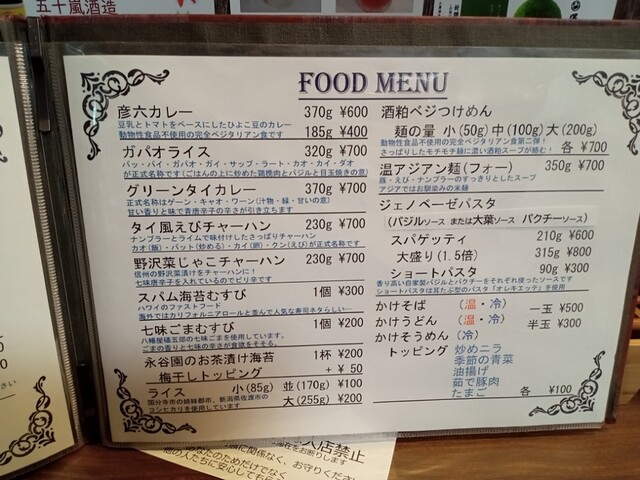 五十嵐酒造
FOOD MENU
彦六カレー 370g ¥600
豆乳とトマトをベースにしたひよこ豆のカレー
動物性食品不使用の完全ベジタリアン食です 185g ¥400
ガパオライス 320g ¥700
パッ・パイ・ガパオ・ガイ・サップ・ラート・カオ・カイ・ダオ
が正式名称です(ごはんの上に炒めた鶏挽肉とバジルと目玉焼きの意)
グリーンタイカレー 370g ¥700
正式名称はゲーン・キャオ・ワーン(汁物・緑・甘いの意)
甘い香りと味で青唐辛子の辛さが引き立ちます
タイ風えびチャーハン 230g ¥700
ナンプラーとライムで味付けしたさっぱりチャーハン
カオ(飯)・パット(炒める)・カイ(卵)・クン(えび)が正式名称です
野沢菜じゃこチャーハン 230g ¥700
信州の野沢菜漬けをチャーハンに!
七味唐辛子を入れているのでピリ辛です
スパム海苔むすび 1個 ¥300
ハワイのファストフード
海外ではカリフォルニアロールと並んで人気な寿司ネタらしい…
七味ごまむすび 1個 ¥200
八幡屋礒五郎の七味ごまを使用しています。
ごまの香りと七味の辛さが食欲をそそる。
永谷園のお茶漬け海苔 1杯 ¥200
梅干しトッピング + ¥50
ライス 小(85g) 並(170g) ¥100
国分寺市の姉妹都市、新潟県佐渡市の
コシヒカリを使用しています 大(255g) ¥200
酒粕ベジつけめん
麺の量 小(50g)中(100g)大(200g)
動物性食品不使用の完全ベジタリアン食第二弾!
さっぱりしたモチモチ麺に濃い酒粕スープが絡む! 各 ¥700
温アジアン麺(フォー) 350g ¥700
豚・えび・ナンプラーのすっきりとしたスープ
アジアではお馴染みの米麺
ジェノベーゼパスタ
(バジルソース または大葉ソース パクチーソース)
スパゲッティ 210g ¥600
大盛り(1.5倍) 315g ¥800
ショートパスタ 90g ¥300
香り高い自家製バジルとパクチーをそれぞれ使ったソースです
ショートパスタは耳たぶ型のパスタ「オレキエッテ」を使用
かけそば (温・冷) 一玉 ¥500
かけうどん (温・冷) 半玉 ¥300
かけそうめん (冷)
トッピング 炒めニラ
季節の青菜
油揚げ
茹で豚肉
たまご 各 ¥100
入店禁止
在をお断りします
に関係なく、お守りくださ
なたのためだけでなく
他の人たちに安心しても